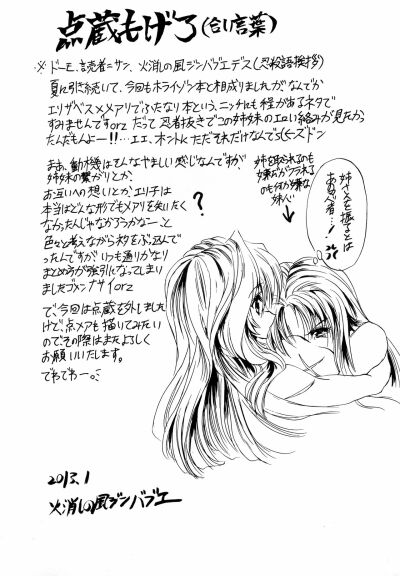 点蔵もげろ(合い言葉)
※ドーモ、読者=サン、火消しの風ジンバブエデス(忍殺語挨拶)
夏に引き続いて、今回もホライゾン本と相成りましたがなんでか
エリザベス×メアリでふたなり本という、ニッチにも程が有るネタで
すみませんですorz だって忍者抜きでこの姉妹のエロい絡みが見たかっ
たんだもんよー!!…エエ、ホントにただそれだけなんです(ヒーズドン
まあ、動機はそんなやましい感じなんですが、
姉妹の繋がりとか、
お互いへの想いとか、エリチは
本当はどんな形でもメアリを失いたく
なかったんじゃなかろうかなー、と
色々と考えながらネタをぶっ込んで
ったんですが、いつも通りかなり
まとめ方が強引になってしまい
ましたゴメンナサイorz
で、今回は点蔵を外しました
けど、点メアも描いてみたい
のでその際はまたよろしく
お願いいたします。
でわでわー。
?
姉を取られるのも
嫌だがフラれる
のも何か嫌な
妹心
↓
姉さんを振るとは
あの忍者…!
2013.1
火消しの風ジンバブエ